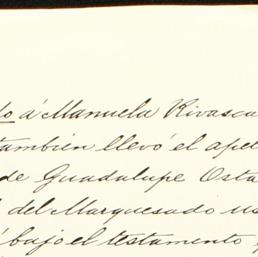 do á Manuela Rivasca
también llevó el ape
de Guadalupe Osta
del Marquesado us
bajo el testamento